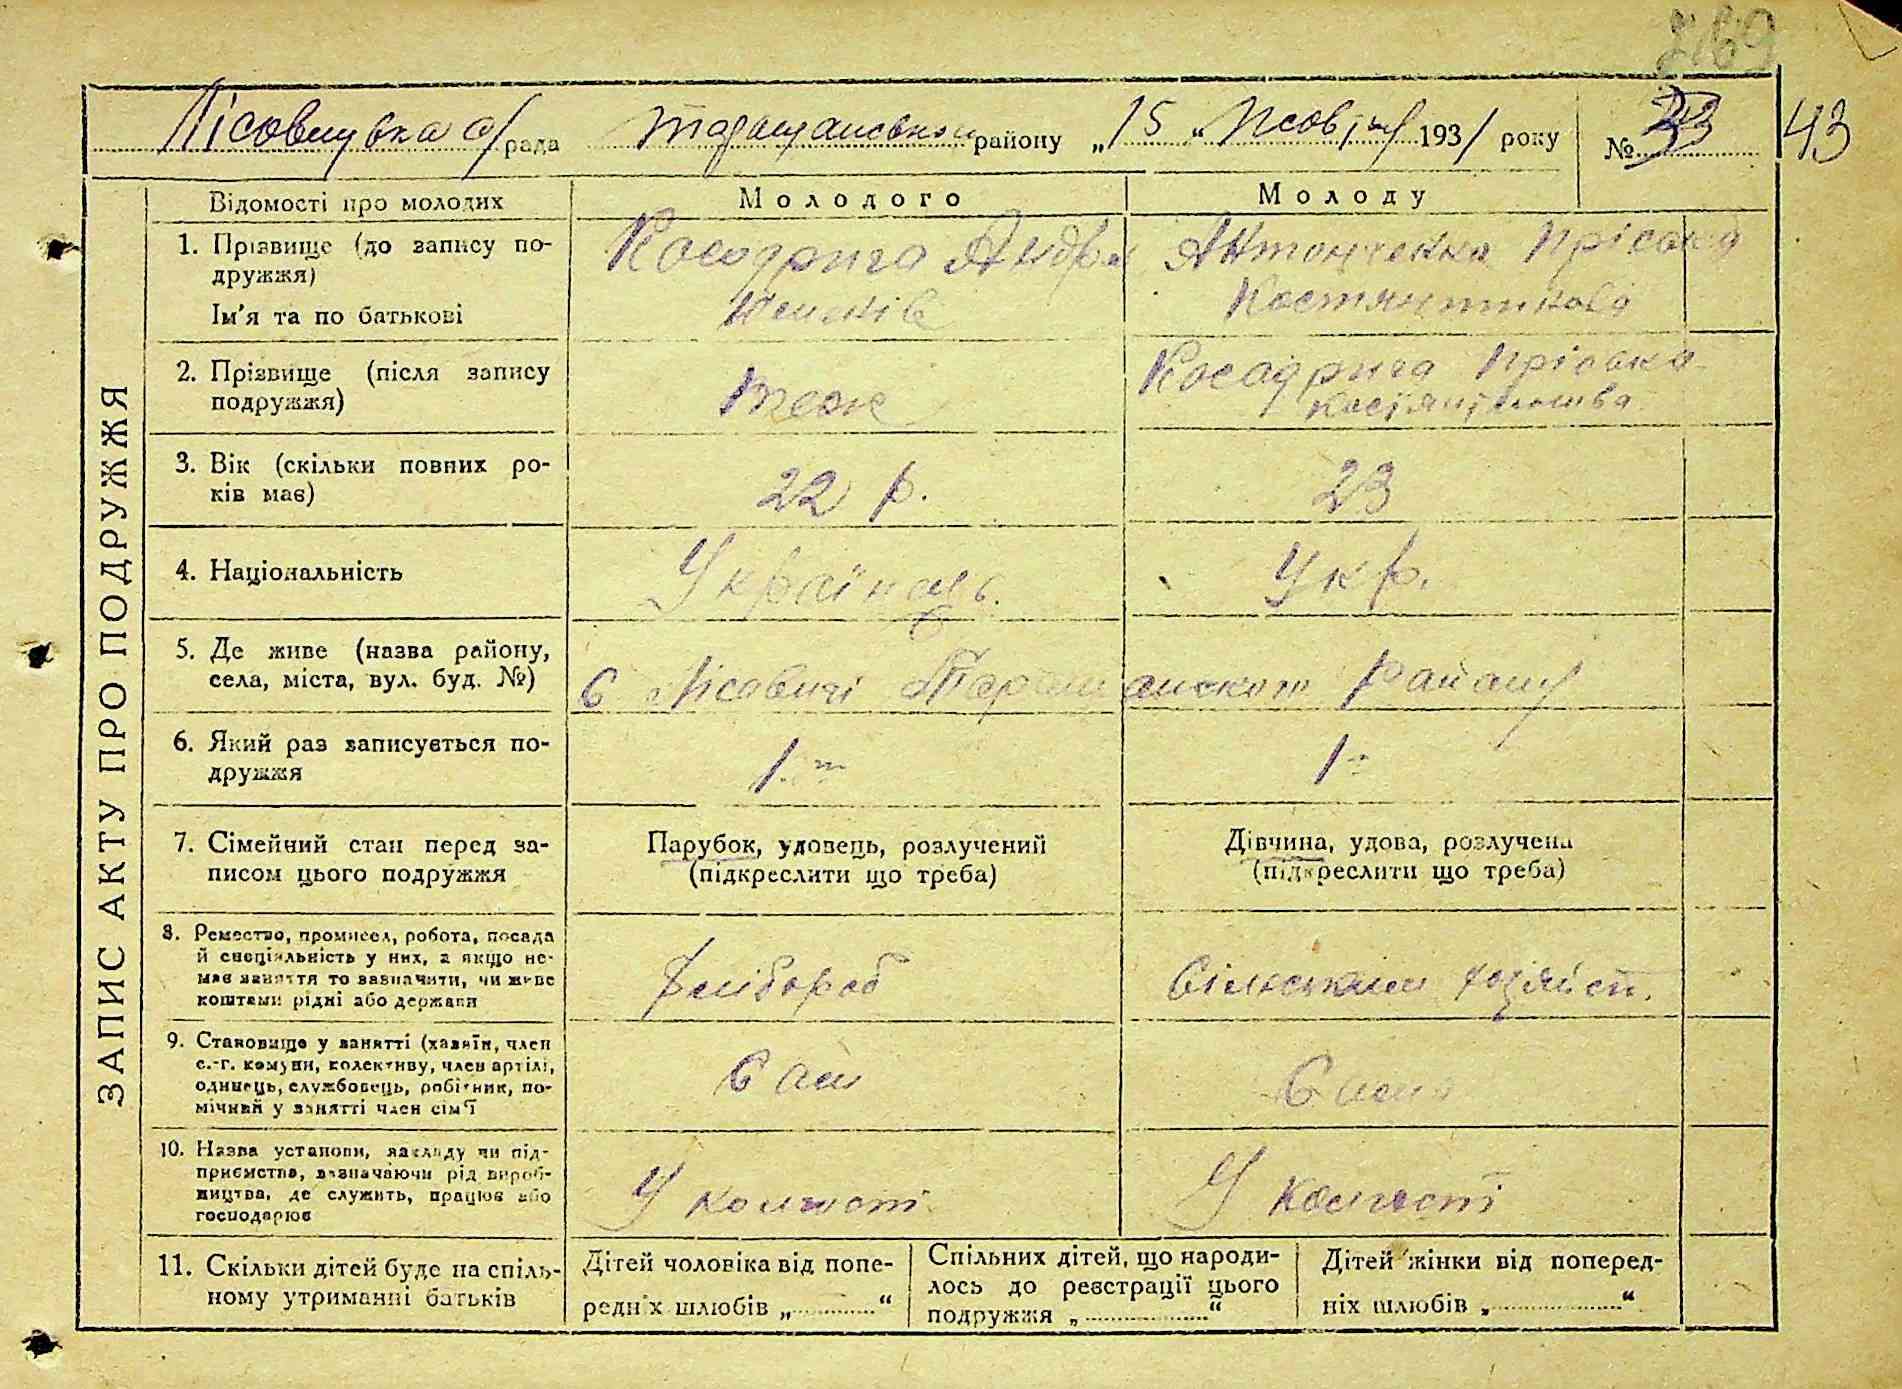 Лісовицька с/рада Таращанськ району „15“ Жовтня 1931 року № 33 43
Відомості про молодих
Молодого
Молоду
1. Прізвище (до запису подружжя)
Ім'я та по батькові
Косодрига Андрій
Антонченко Пріська
Костянтинова
2. Прізвище (після запису подружжя)
теж
Косодрига Пріська
3. Вік (скільки повних років має)
22 р.
23
4. Національність
Українець
Укр.
5. Де живе (назва району, села, міста, вул. буд. №)
с Лісовичі Таращанського району
6. Який раз записується подружжя
1
1
7. Сімейний стан перед записом цього подружжя
Парубок, удовець, розлучений
(підкреслити що треба)
Дівчина, удова, розлучена
(підкреслити що треба)
8. Ремество, промисел, робота, посада й спеціяльність у них, а якщо немає заняття то зазначити, чи живе коштами рідні або держави
Хлібороб
9. Становище у занятті (хазяїн, член с.-г. комуни, колективу, член артілі, одинець, службовець, робітник, помічний у занятті член сім'ї
10. Назва установи, закладу чи підприємства, зазначаючи рід виробництва, де служить, працює або господарює
11. Скільки дітей буде на спільному утриманні батьків
Дітей чоловіка від попередніх шлюбів „ “
Спільних дітей, що народилось до реєстрації цього подружжя „ “
Дітей жінки від попередніх шлюбів „ “
ЗАПИС АКТУ ПРО ПОДРУЖЖЯ